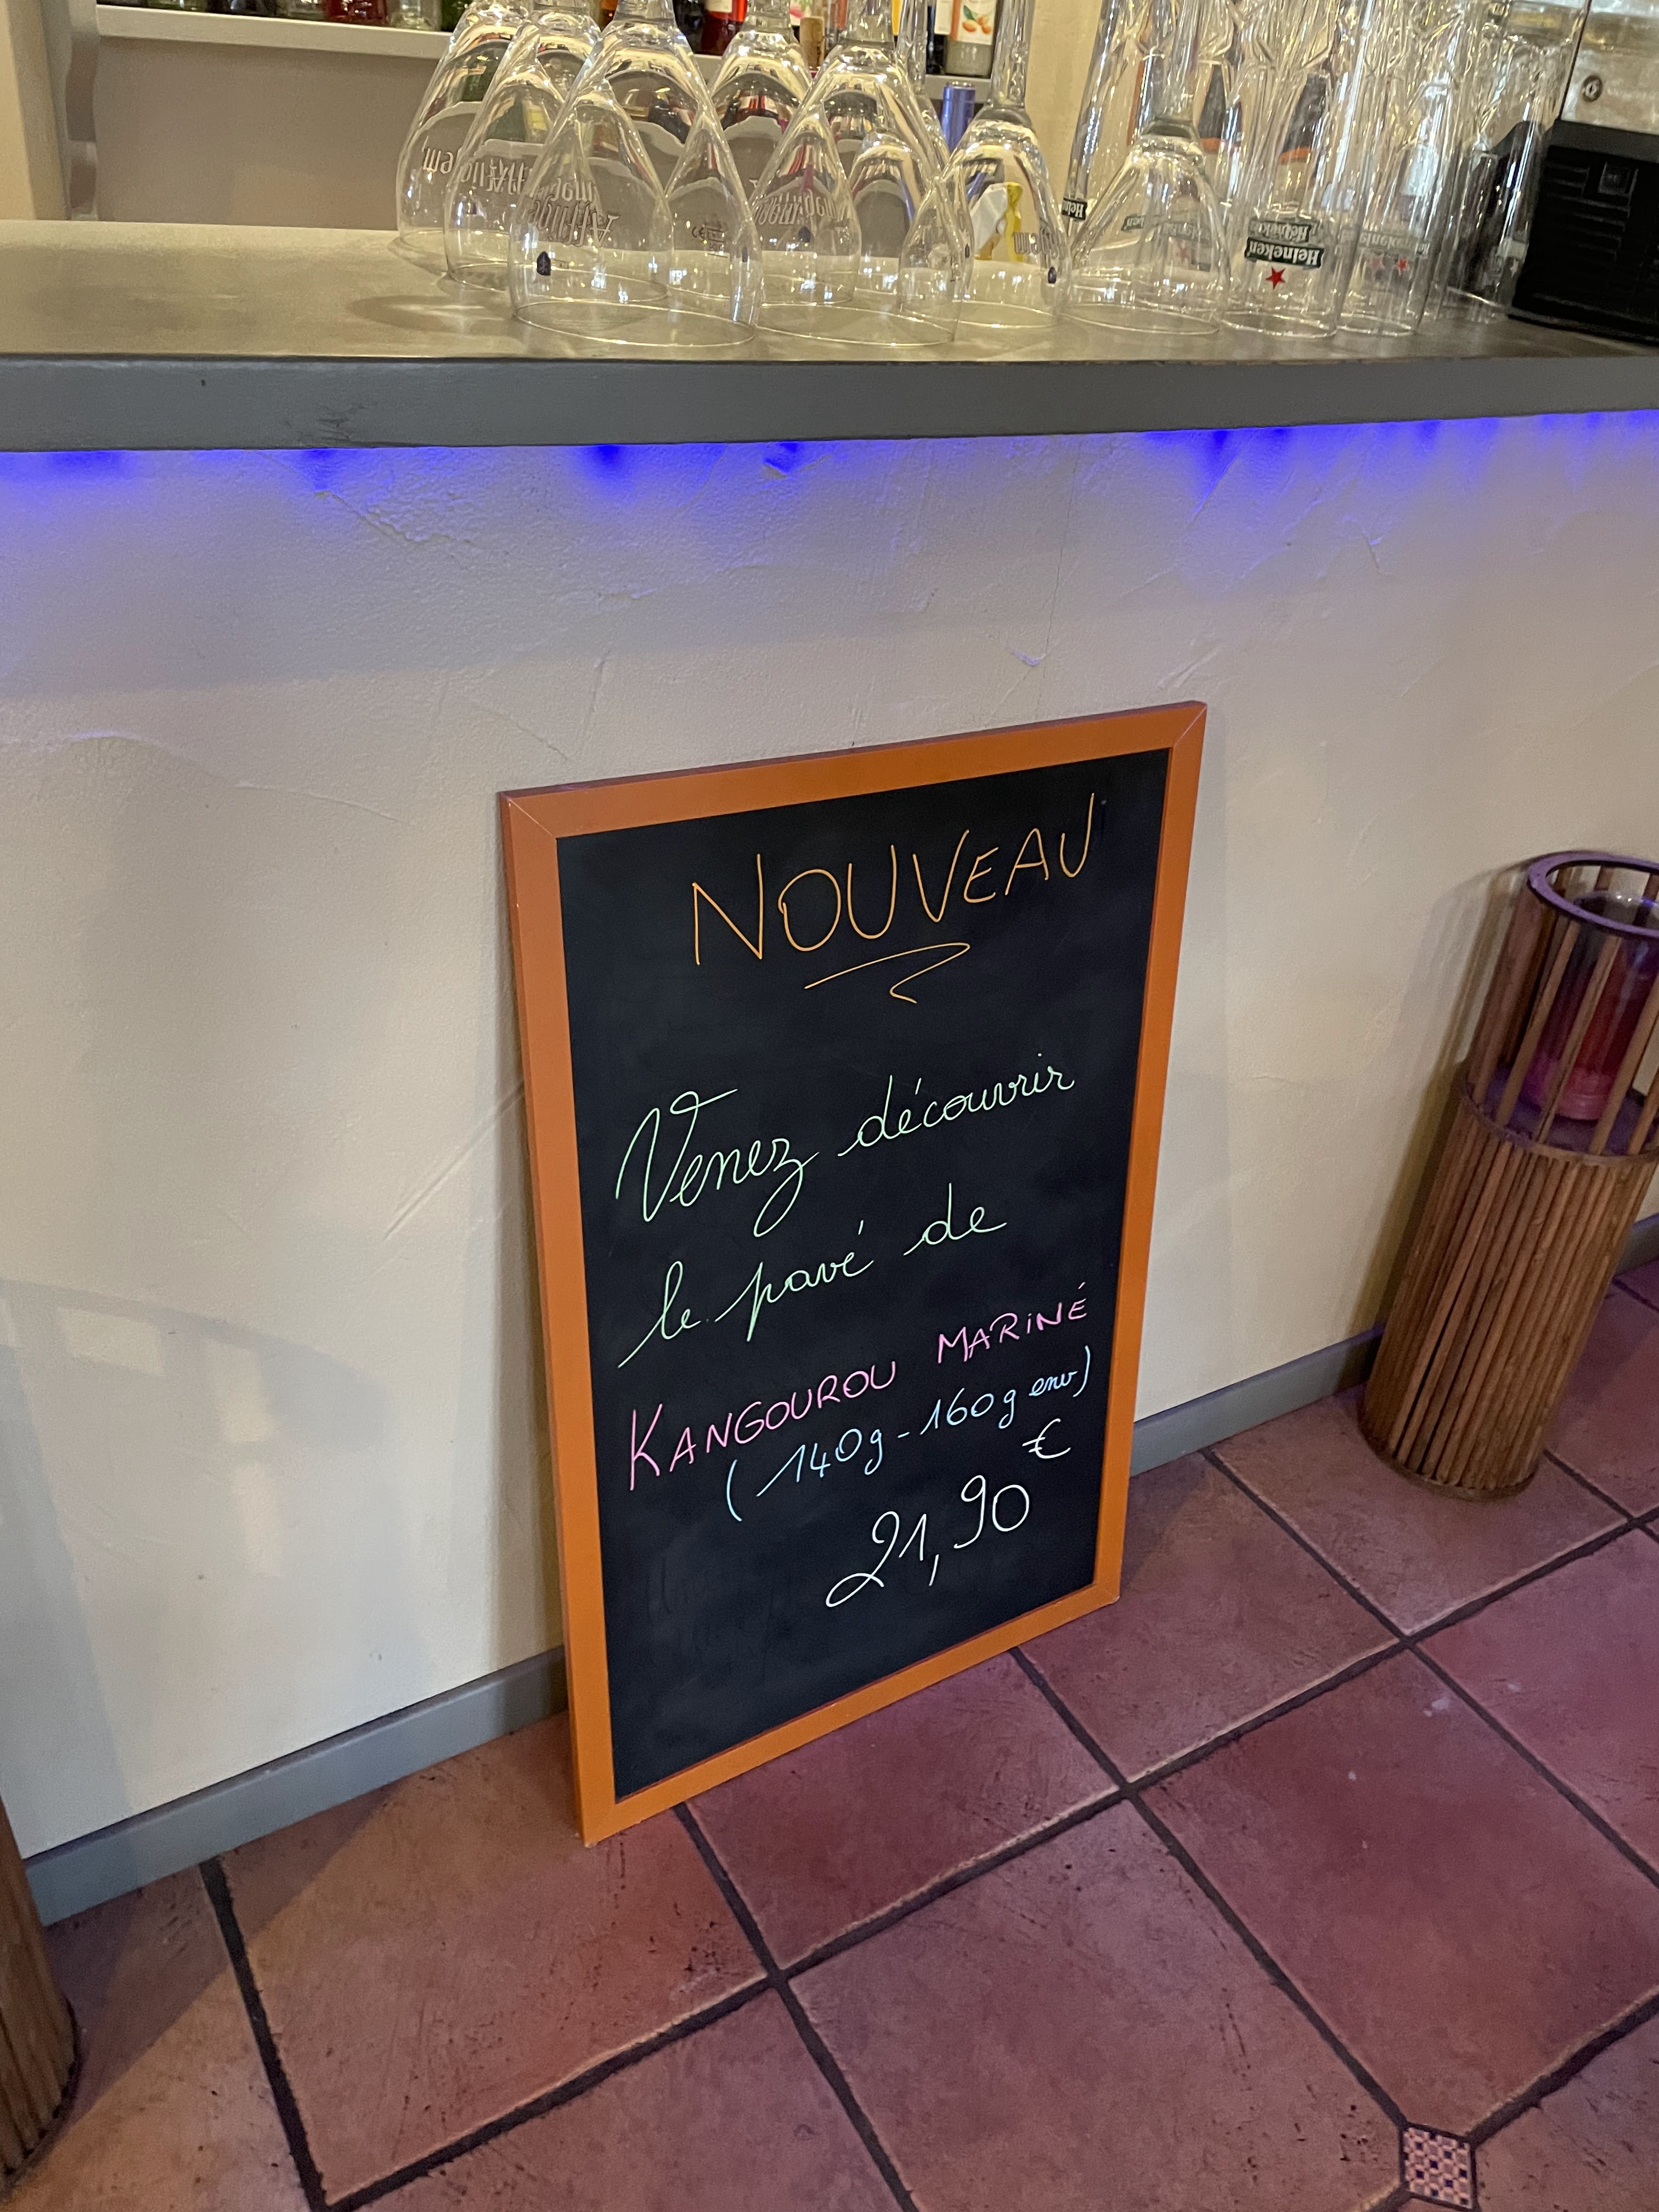 NOUVEAU
Venez découvrir
le pavé de
KANGOUROU MARINÉ
(140g - 160g env)
21,90 €
Affligem
Heineken